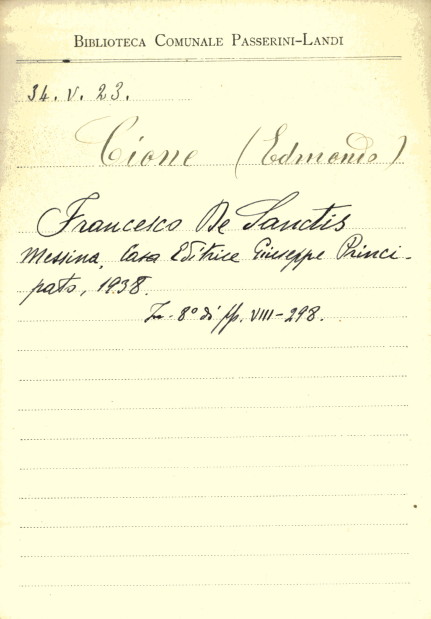 BIBLIOTECA COMUNALE PASSERINI-LANDI
34. V. 23.
Cione (Edmondo)
Francesco De Sanctis
Messina, Casa Editrice Giuseppe Princi-
pato, 1938.
In-8° di pp. VIII-298.